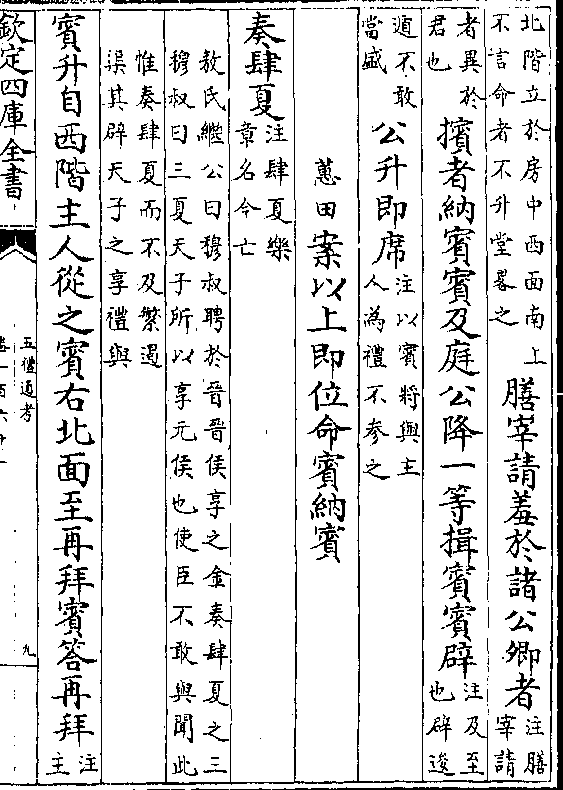 北階立於房中西面南上
不言命者不升堂畧之
膳宰請羞於諸公卿者
注膳
宰請
者異於
君也
擯者納賓賓及庭公降一等揖賓賓辟
注及至
也辟逡
遁不敢
當盛
公升即席
注以賓將與主
人為禮不參之
蕙田案以上即位命賓納賓
奏肆夏
注肆夏樂
章名今亡
敖氏繼公曰穆叔聘於晉晉侯享之金奏肆夏之三
穆叔曰三夏天子所以享元侯也使臣不敢與聞此
惟奏肆夏而不及繁遏
渠其辟天子之享禮與
賓升自西階主人從之賓右北面至再拜賓答再拜
注
主
欽定四庫全書
五禮通考
九